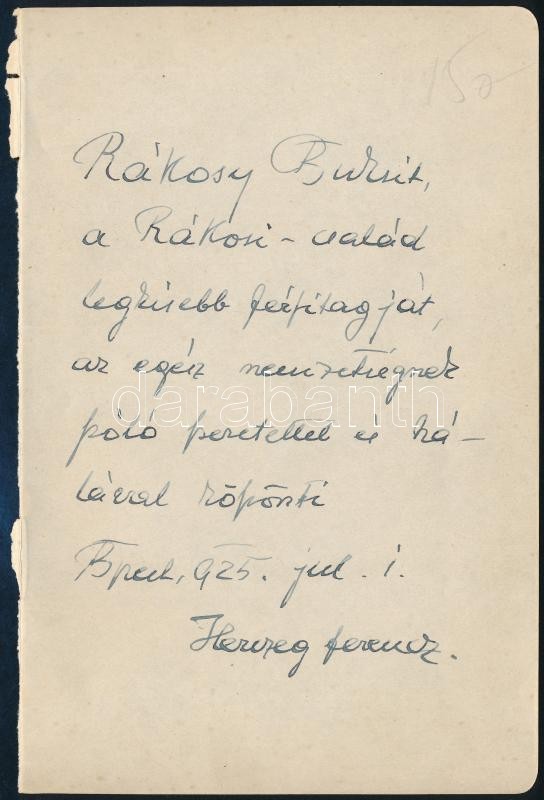 150
Rákosy Bubsit,
a Rákosi-család
legkisebb férfitagját,
az egész nemzetségnek
szóló szeretettel és há-
lával köszönti
Bpest, 925. jul. 1.
Herczeg Ferencz.
darabanth